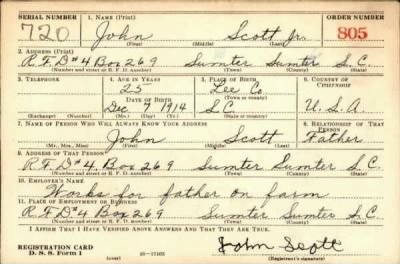 SERIAL NUMBER 1. NAME (Print) ORDER NUMBER
720 John Scott Jr. 805
(First) (Middle) (Last)
2. ADDRESS (Print)
R.F.D#4 Box 269 Sumter Sumter S.C.
(Number and street or R. F. D. number) (Town) (County) (State)
3. TELEPHONE 4. AGE IN YEARS 5. PLACE OF BIRTH 6. COUNTRY OF CITIZENSHIP
25 Lee Co.
DATE OF BIRTH (Town or county)
Dec 7 1914 S.C. U.S.A.
(Exchange) (Number) (Mo.) (Day) (Yr.) (State or country)
7. NAME OF PERSON WHO WILL ALWAYS KNOW YOUR ADDRESS 8. RELATIONSHIP OF THAT PERSON
John Scott Father
(Mr., Mrs., Miss) (First) (Middle) (Last)
9. ADDRESS OF THAT PERSON
R.F.D#4. Box 269 Sumter Sumter S.C.
(Number and street or R. F. D. number) (Town) (County) (State)
10. EMPLOYER'S NAME
Works for father on farm
11. PLACE OF EMPLOYMENT OR BUSINESS
R.F.D#4 Box 269 Sumter Sumter S.C.
(Number and street or R. F. D. number) (Town) (County) (State)
I AFFIRM THAT I HAVE VERIFIED ABOVE ANSWERS AND THAT THEY ARE TRUE.
REGISTRATION CARD John Scott
D. S. S. Form 1 (over) (Registrant's signature)